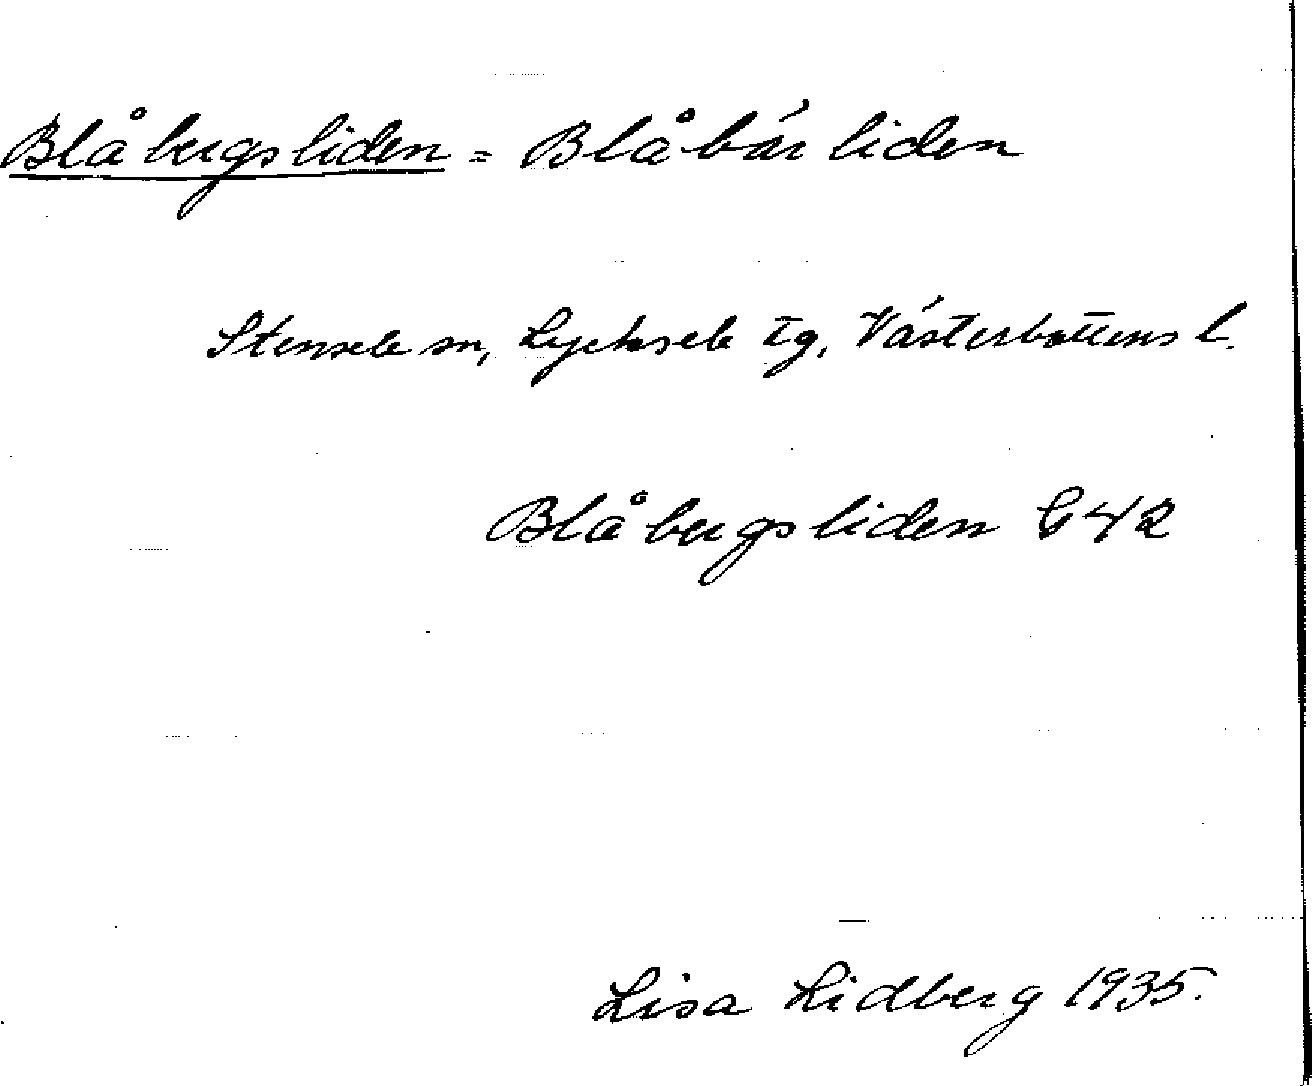 Blåbergsliden = Blåbärliden
Stensele sn, Lycksele tg, Västerbottens l.
Blåbergsliden G42
Lisa Lidberg 1935.